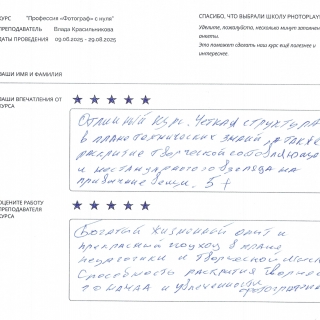 КУРС "Профессия «Фотограф» с нуля"
ПРЕПОДАВАТЕЛЬ Влада Красильникова
ДАТЫ ПРОВЕДЕНИЯ 09.06.2025 - 29.08.2025
СПАСИБО, ЧТО ВЫБРАЛИ ШКОЛУ PHOTOPLAY!
Уделите, пожалуйста, несколько минут заполнению
анкеты.
Это поможет сделать наш курс ещё полезнее и
интереснее.
ВАШИ ИМЯ И ФАМИЛИЯ
ВАШИ ВПЕЧАТЛЕНИЯ ОТ
КУРСА
Отличный курс. Четкая структура
в плане технических знаний, а также
раскрытие творческой
и нестандартного взгляда на
привычные вещи. 5+
ОЦЕНИТЕ РАБОТУ
ПРЕПОДАВАТЕЛЯ
КУРСА
Богатый жизненный опыт и
прекрасный подход в плане
педагогики и творческой
Способность раскрытия
и увлеченности фотографией